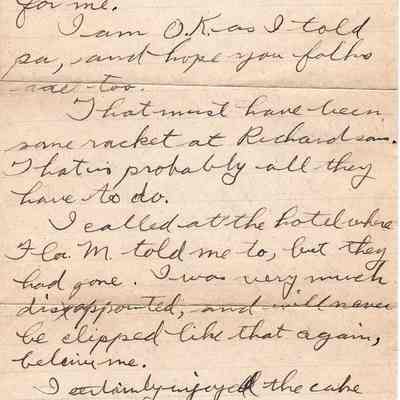 for me.
I am O.K. as I told
pa, and hope you folks
are too.
That must have been
some racket at Richardsons.
That is probably all they
have to do.
I called at the hotel where
Flo. M told me to, but they
had gone. I was very much
disappointed, and will never
be clipped like that again,
beleive me.
I certainly enjoyed the cake